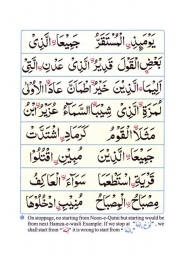 يَوْمَئِذٍ ۨالْمُسْتَقَرُّ جَمِيْعَا ۨالَّذِيْ
بَعْضُ الْقَوْلِ قَدِيْرُ ۨالَّذِيْ عَدْنِ ۨالَّتِيْ
اَلِيْمَا ۨالَّذِيْنَ خَيْرُ ۨاطْمَاَنَّ عَادَا ۨالْاُوْلٰى
لُمَزَةِ ۨالَّذِيْ شِيْبَا ۨالسَّمَآءُ عُزَيْرُ ۨابْنُ
مَثَلَا ۨالْقَوْمُ كَرَمَادِ ۨاشْتَدَّتْ
جَمِيْعَا ۨالَّذِيْ مُبِيْنِ ۨاقْتُلُوْا
قَرْيَةِ ۨاسْتَطْعَمَا سَوَآءَ ۨالْعَاكِفُ
مِصْبَاحٌ ۨالْمِصْبَاحُ مُنِيْبِ ۨادْخُلُوْهَا
On stoppage, no starting from Noon-e-Qutni but starting would be
from next Hamza-e-wasli Example: If we stop at , we
shall start from it is wrong to start from